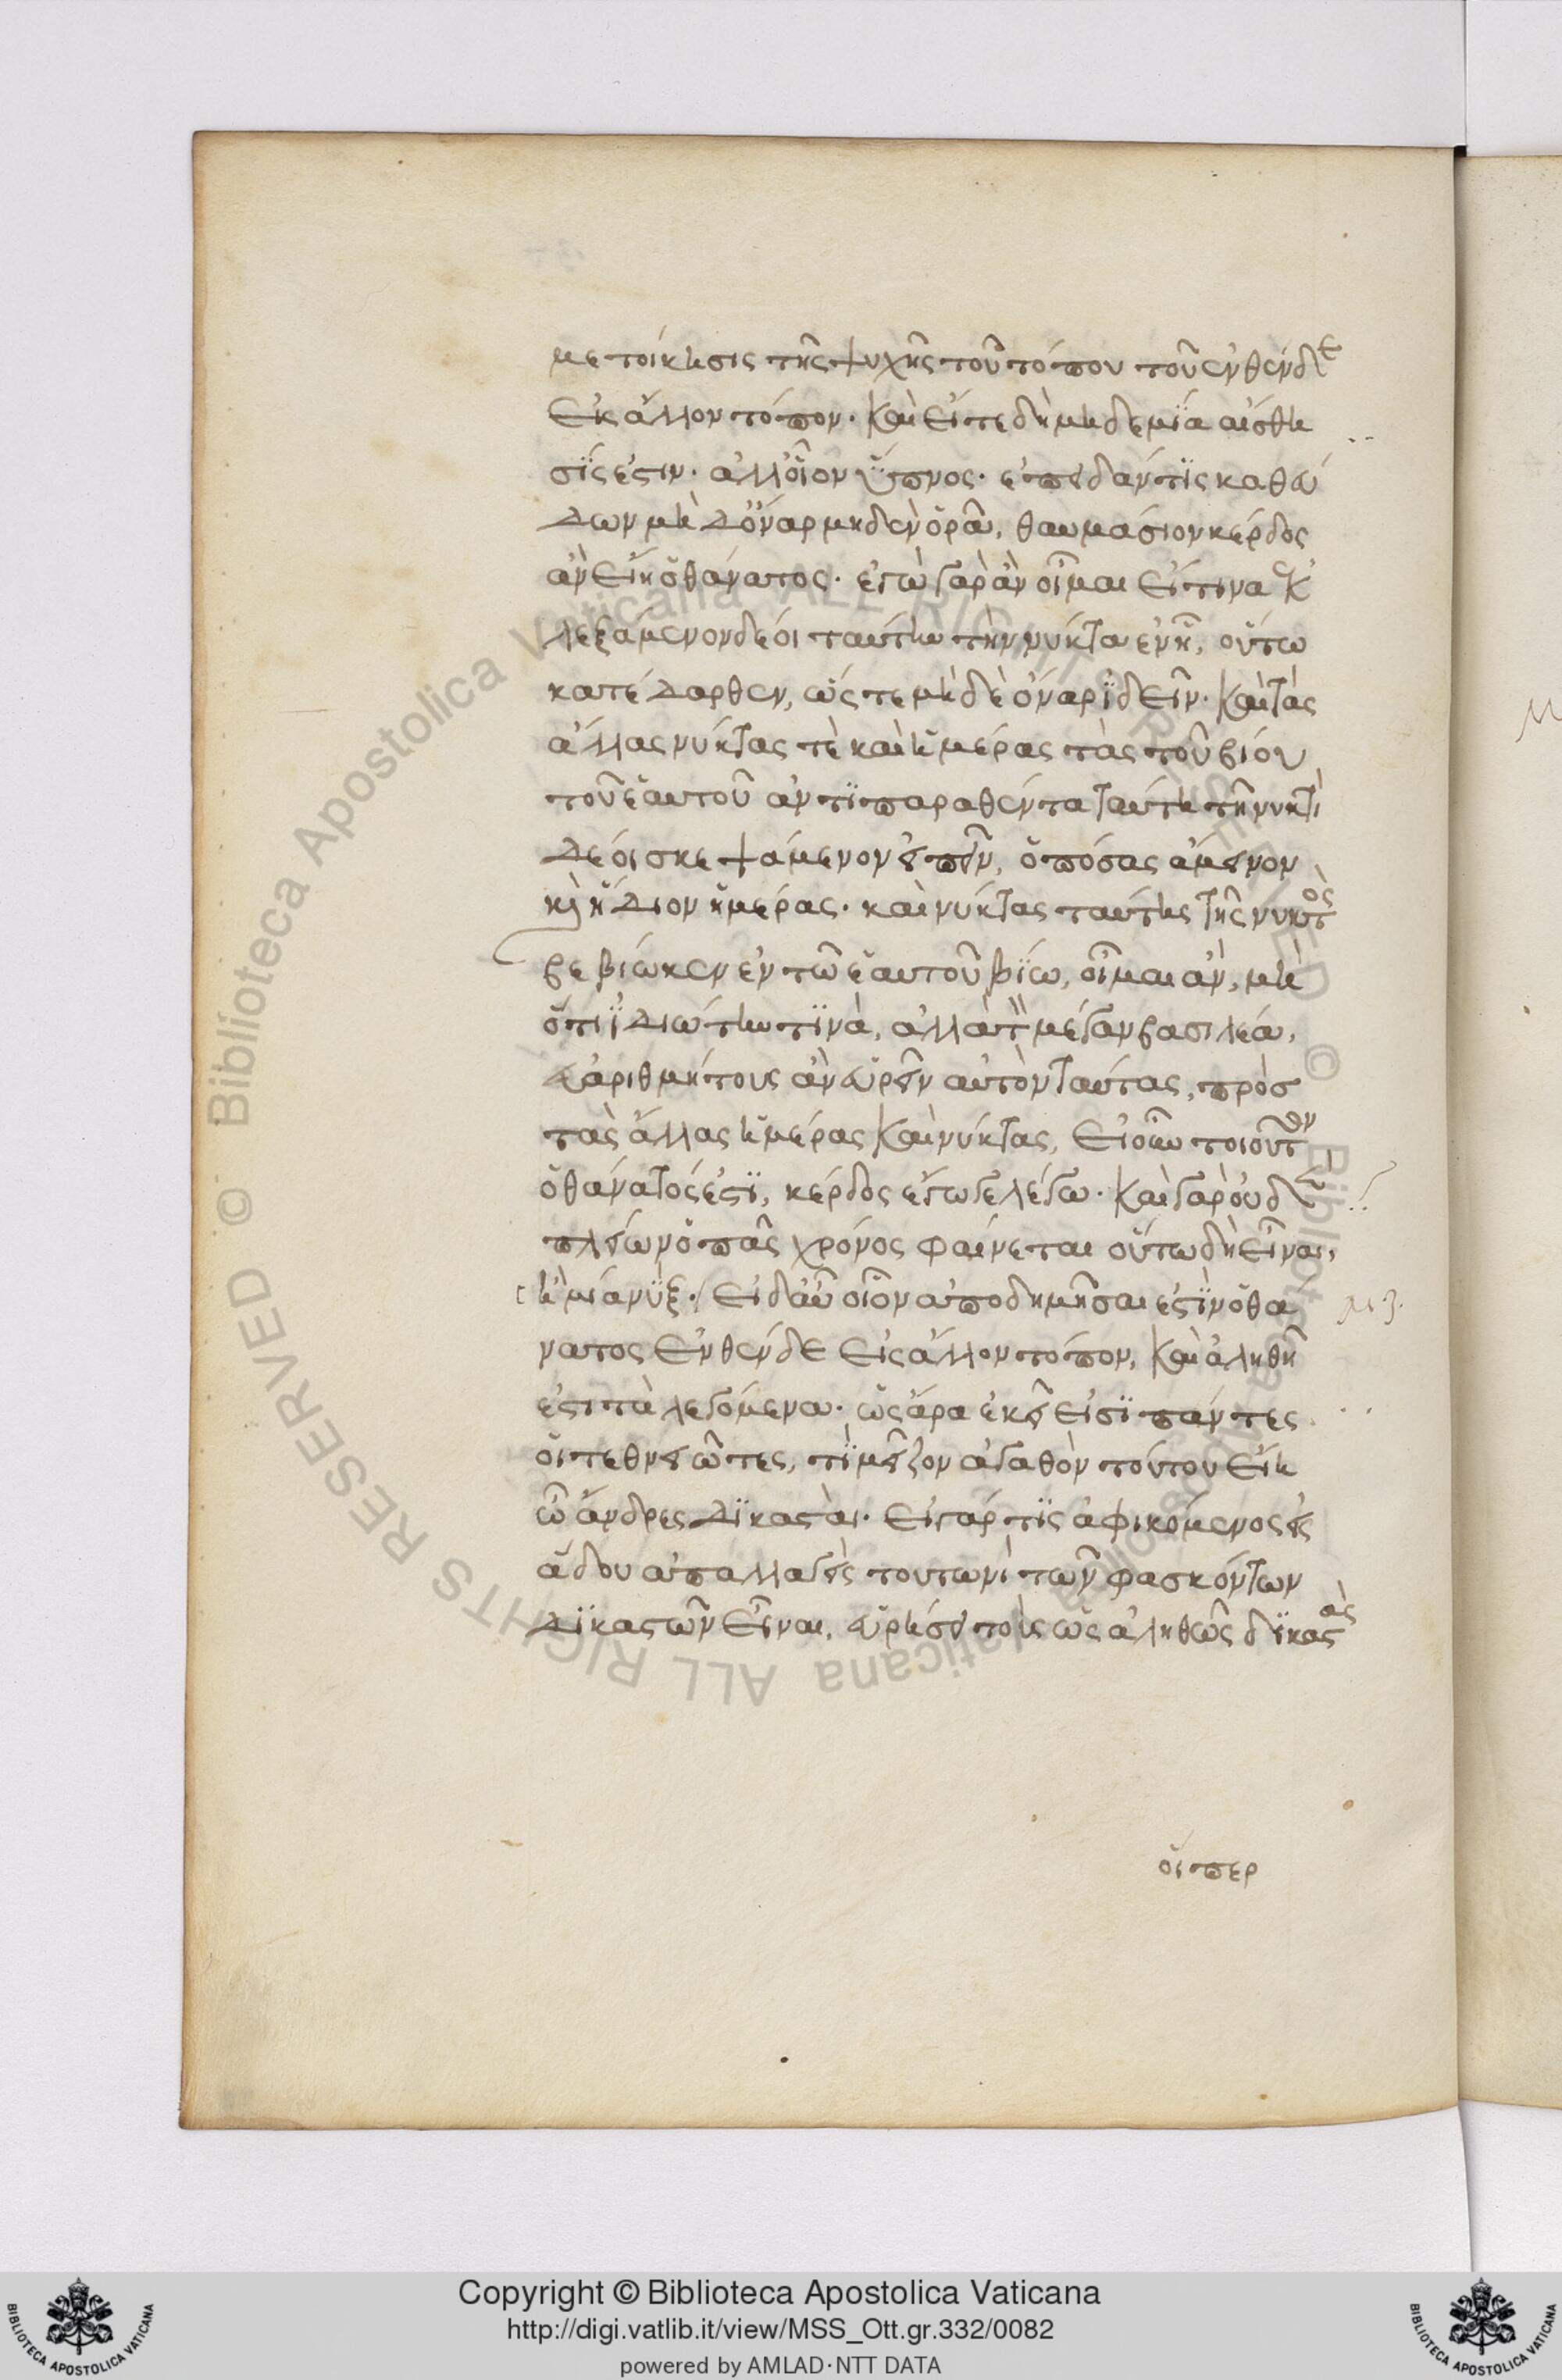 μετοίκησις τῆς ψυχῆς τοῦ τόπου τοῦ ἐνθένδε
εἰς ἄλλον τόπον· καὶ εἴτε δὴ μηδεμία αἴσθη
σίς ἐστιν· ἀλλ' οἷον ὕπνος· ἐπειδάν τις καθεύ
δων μὴ δ' ὄναρ μηδὲν ὁρᾶ, θαυμάσιον κέρδος
ἂν εἴη ὁ θάνατος· ἐγὼ γὰρ ἂν οἶμαι εἴ τινα ἐκ
λεξάμενον δέοι ταύτην τὴν νύκτα ἐν ᾗ, οὕτω
κατέδαρθεν, ὥστε μὴ δὲ ὄναρ ἰδεῖν· καὶ τὰς
ἄλλας νύκτας τὲ καὶ ἡμέρας τὰς τοῦ βίου
τοῦ ἑαυτοῦ ἀντιπαραθέντα ταύτη τῆ νυκτὶ
δέοι σκεψάμενον εἰπεῖν, ὁπόσας ἄμεινον
καὶ ἥδιον ἡμέρας· καὶ νύκτας ταύτης τῆς νυκτὸς
βεβίωκεν ἐν τῶ ἑαυτοῦ βίω, οἶμαι ἂν, μὴ
ὅτι ἰδιώτην τινὰ, ἀλλὰ τὸν μέγαν βασιλέα,
εὐαριθμήτους ἂν εὑρεῖν αὐτὸν ταύτας, πρὸσ
τὰς ἄλλας ἡμέρας καὶ νύκτας, εἰ οὖν τοιοῦτον
ὁ θάνατός ἐστι, κέρδος ἔγωγε λέγω· καὶ γὰρ οὐδὲν
πλείων ὁ πᾶς χρόνος φαίνεται οὕτω δὴ εἶναι,
ἢ μία νύξ· εἰ δ' αὖ οἷον ἀποδημῆσαι ἐστὶν ὁ θά
νατος ἐνθένδε εἰς ἄλλον τόπον, καὶ ἀληθῆ
ἐστι τὰ λεγόμενα· ὡς ἄρα ἐκεῖ εἰσὶ πάντες
οἱ τεθνεῶτες, τί μεῖζον ἀγαθὸν τούτου εἴη
ὦ ἄνδρες δικασταί· εἰ γάρ τις ἀφικόμενος εἰς
ἅδου ἀπαλλαγεὶς τουτωνὶ τῶν φασκόντων
δικαστῶν εἶναι, εὑρήσει τοὺς ὡς ἀληθῶς δικαστὰς
οἵπερ
Copyright © Biblioteca Apostolica Vaticana
http://digi.vatlib.it/view/MSS_Ott.gr.332/0082
powered by AMLAD·NTT DATA